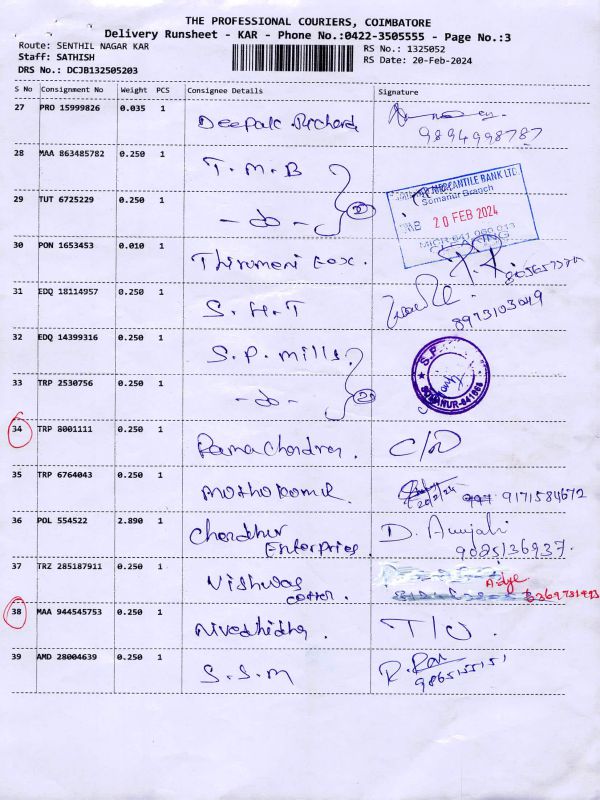 THE PROFESSIONAL COURIERS, COIMBATORE
Delivery Runsheet - KAR - Phone No.:0422-3505555 - Page No.:3
Route: SENTHIL NAGAR KAR
RS No.: 1325052
Staff: SATHISH
RS Date: 20-Feb-2024
DRS No.: DCJB132505203
S No Consignment No Weight PCS Consignee Details Signature
27 PRO 15999826 0.035 1 Deepak Richard
9894998787
28 MAA 863485782 0.250 1 T.M.B
MERCANTILE BANK LTD.
Somanur Branch
29 TUT 6725229 0.250 1 - do - 2
20 FEB 2024
CLEARING
30 PON 1653453 0.010 1 Thirumeni Eox.
31 EDQ 18114957 0.250 1 S.H.T
8973103049
32 EDQ 14399316 0.250 1 S.P. Mills
S.P.
33 TRP 2530756 0.250 1 - do - 2
SOMANUR-641668
34 TRP 8001111 0.250 1 Ramachandran. C/D
35 TRP 6764043 0.250 1 20/2/24 9171584672
36 POL 554522 2.890 1 Enterprises D. Anjali
37 TRZ 285187911 0.250 1 Vishwas
cotton.
38 MAA 944545753 0.250 1 Nivedhidha T/O.
39 AMD 28004639 0.250 1 S.S.M